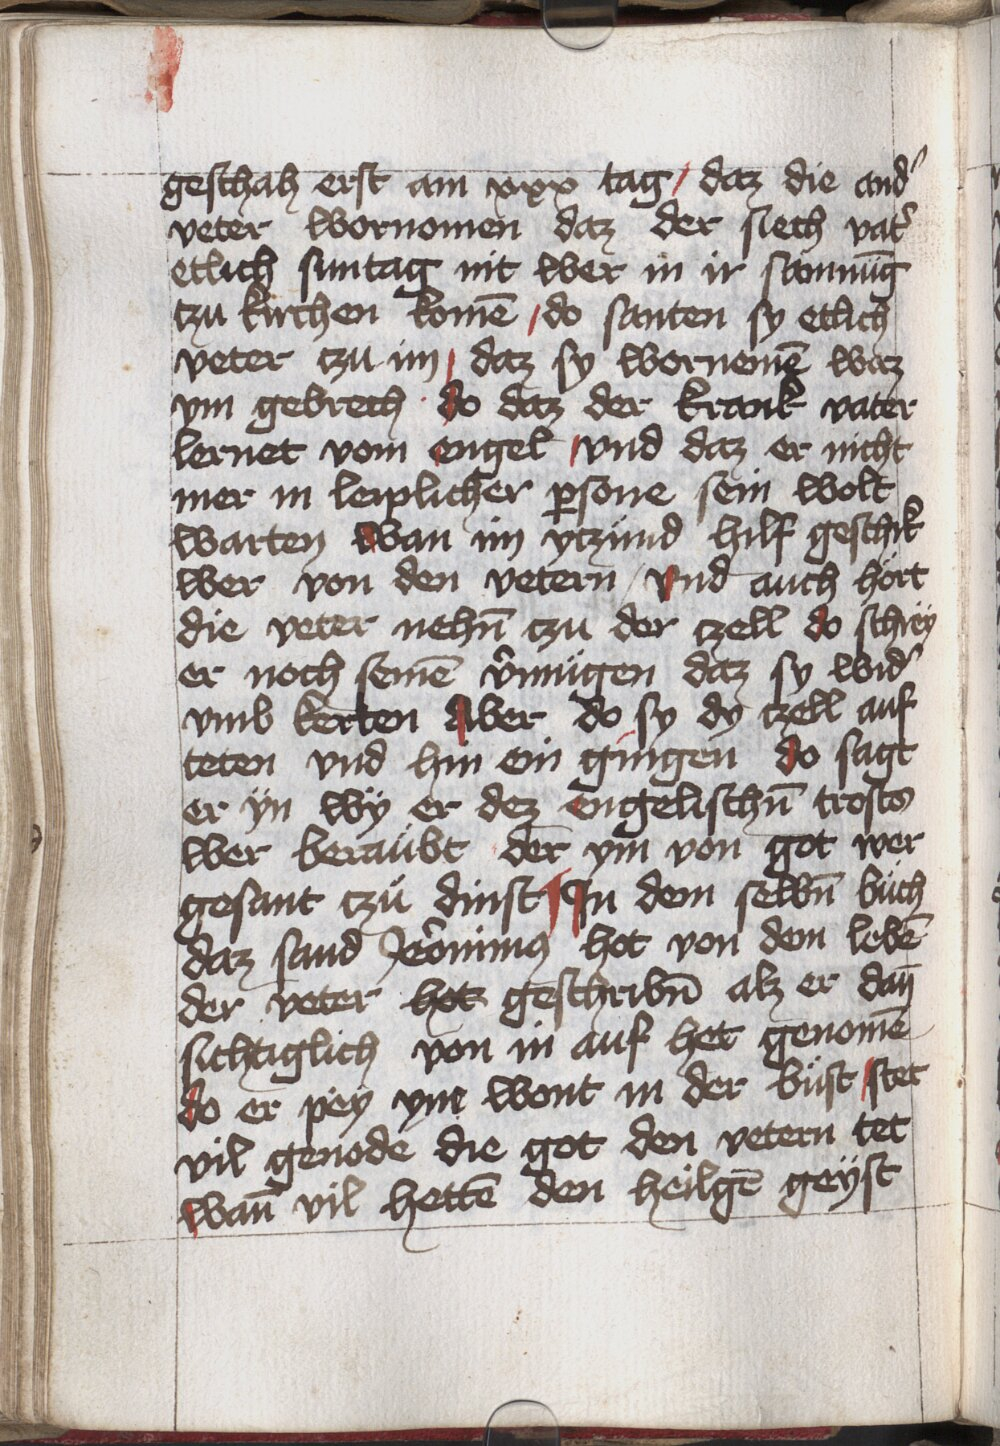 geschah erst am xxx tag / daz die and'
veter wornomen daz der siech vat'
etlich suntag nit wer in ir samnūg
tzu kirchen komē / do santen sy etlich
veter tzu im / daz sy wornemē waz
ym gebrech · do daz der krank vater
lernet vom engel / vnd daz er nicht
mer in leiplicher ꝑsone sein wolt
warten wan im ytzund hilf geschik
wer von den vetern / vnd auch hort
die veter nehn̄ tzu der tzell do schrey
er noch seinē v'mügen daz sy wid'
vmb kerten Aber do sy dy tzell auf
teten vnd hin ein gingen do sagt
er ÿn wÿ er dez engelischn̄ trosts
wer beraubt der ym von got wer
gesant tzu dinst ¶ In dem selbn̄ buch
daz sand Jeronimus hot von dem lebē
der veter hot geschribn̄ alz er dan̄
sichtiglich von in auf het genomē
do er pey ym wont in der büst / stet
vil genode die got den vetern tet
wan̄ vil hettē den heilgē geÿst